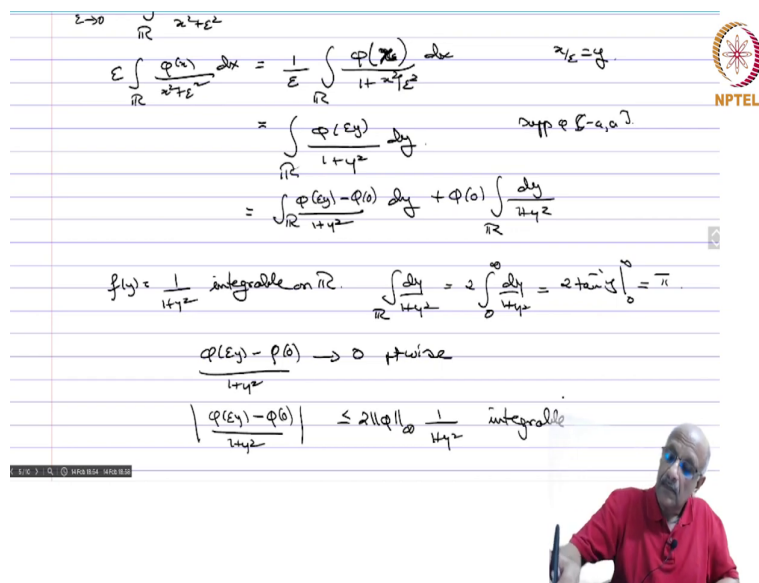 ε→0 ∫_ℝ x²+ε²
ε ∫_ℝ φ(x)/(x²+ε²) dx = 1/ε ∫_ℝ φ(x)/(1+x²/ε²) dx x/ε = y.
= ∫_ℝ φ(εy)/(1+y²) dy. supp φ ⊂ [-a,a].
= ∫_ℝ (φ(εy)-φ(0))/(1+y²) dy + φ(0) ∫_ℝ dy/(1+y²)
f(y) = 1/(1+y²) integrable on ℝ. ∫_ℝ dy/(1+y²) = 2 ∫_0^∞ dy/(1+y²) = 2 tan⁻¹y |_0^∞ = π.
(φ(εy) - φ(0))/(1+y²) → 0 ptwise
|(φ(εy)-φ(0))/(1+y²)| ≤ 2||φ||_∞ 1/(1+y²) integrable
NPTEL
5/10
14 Feb 18:54 14 Feb 18:58